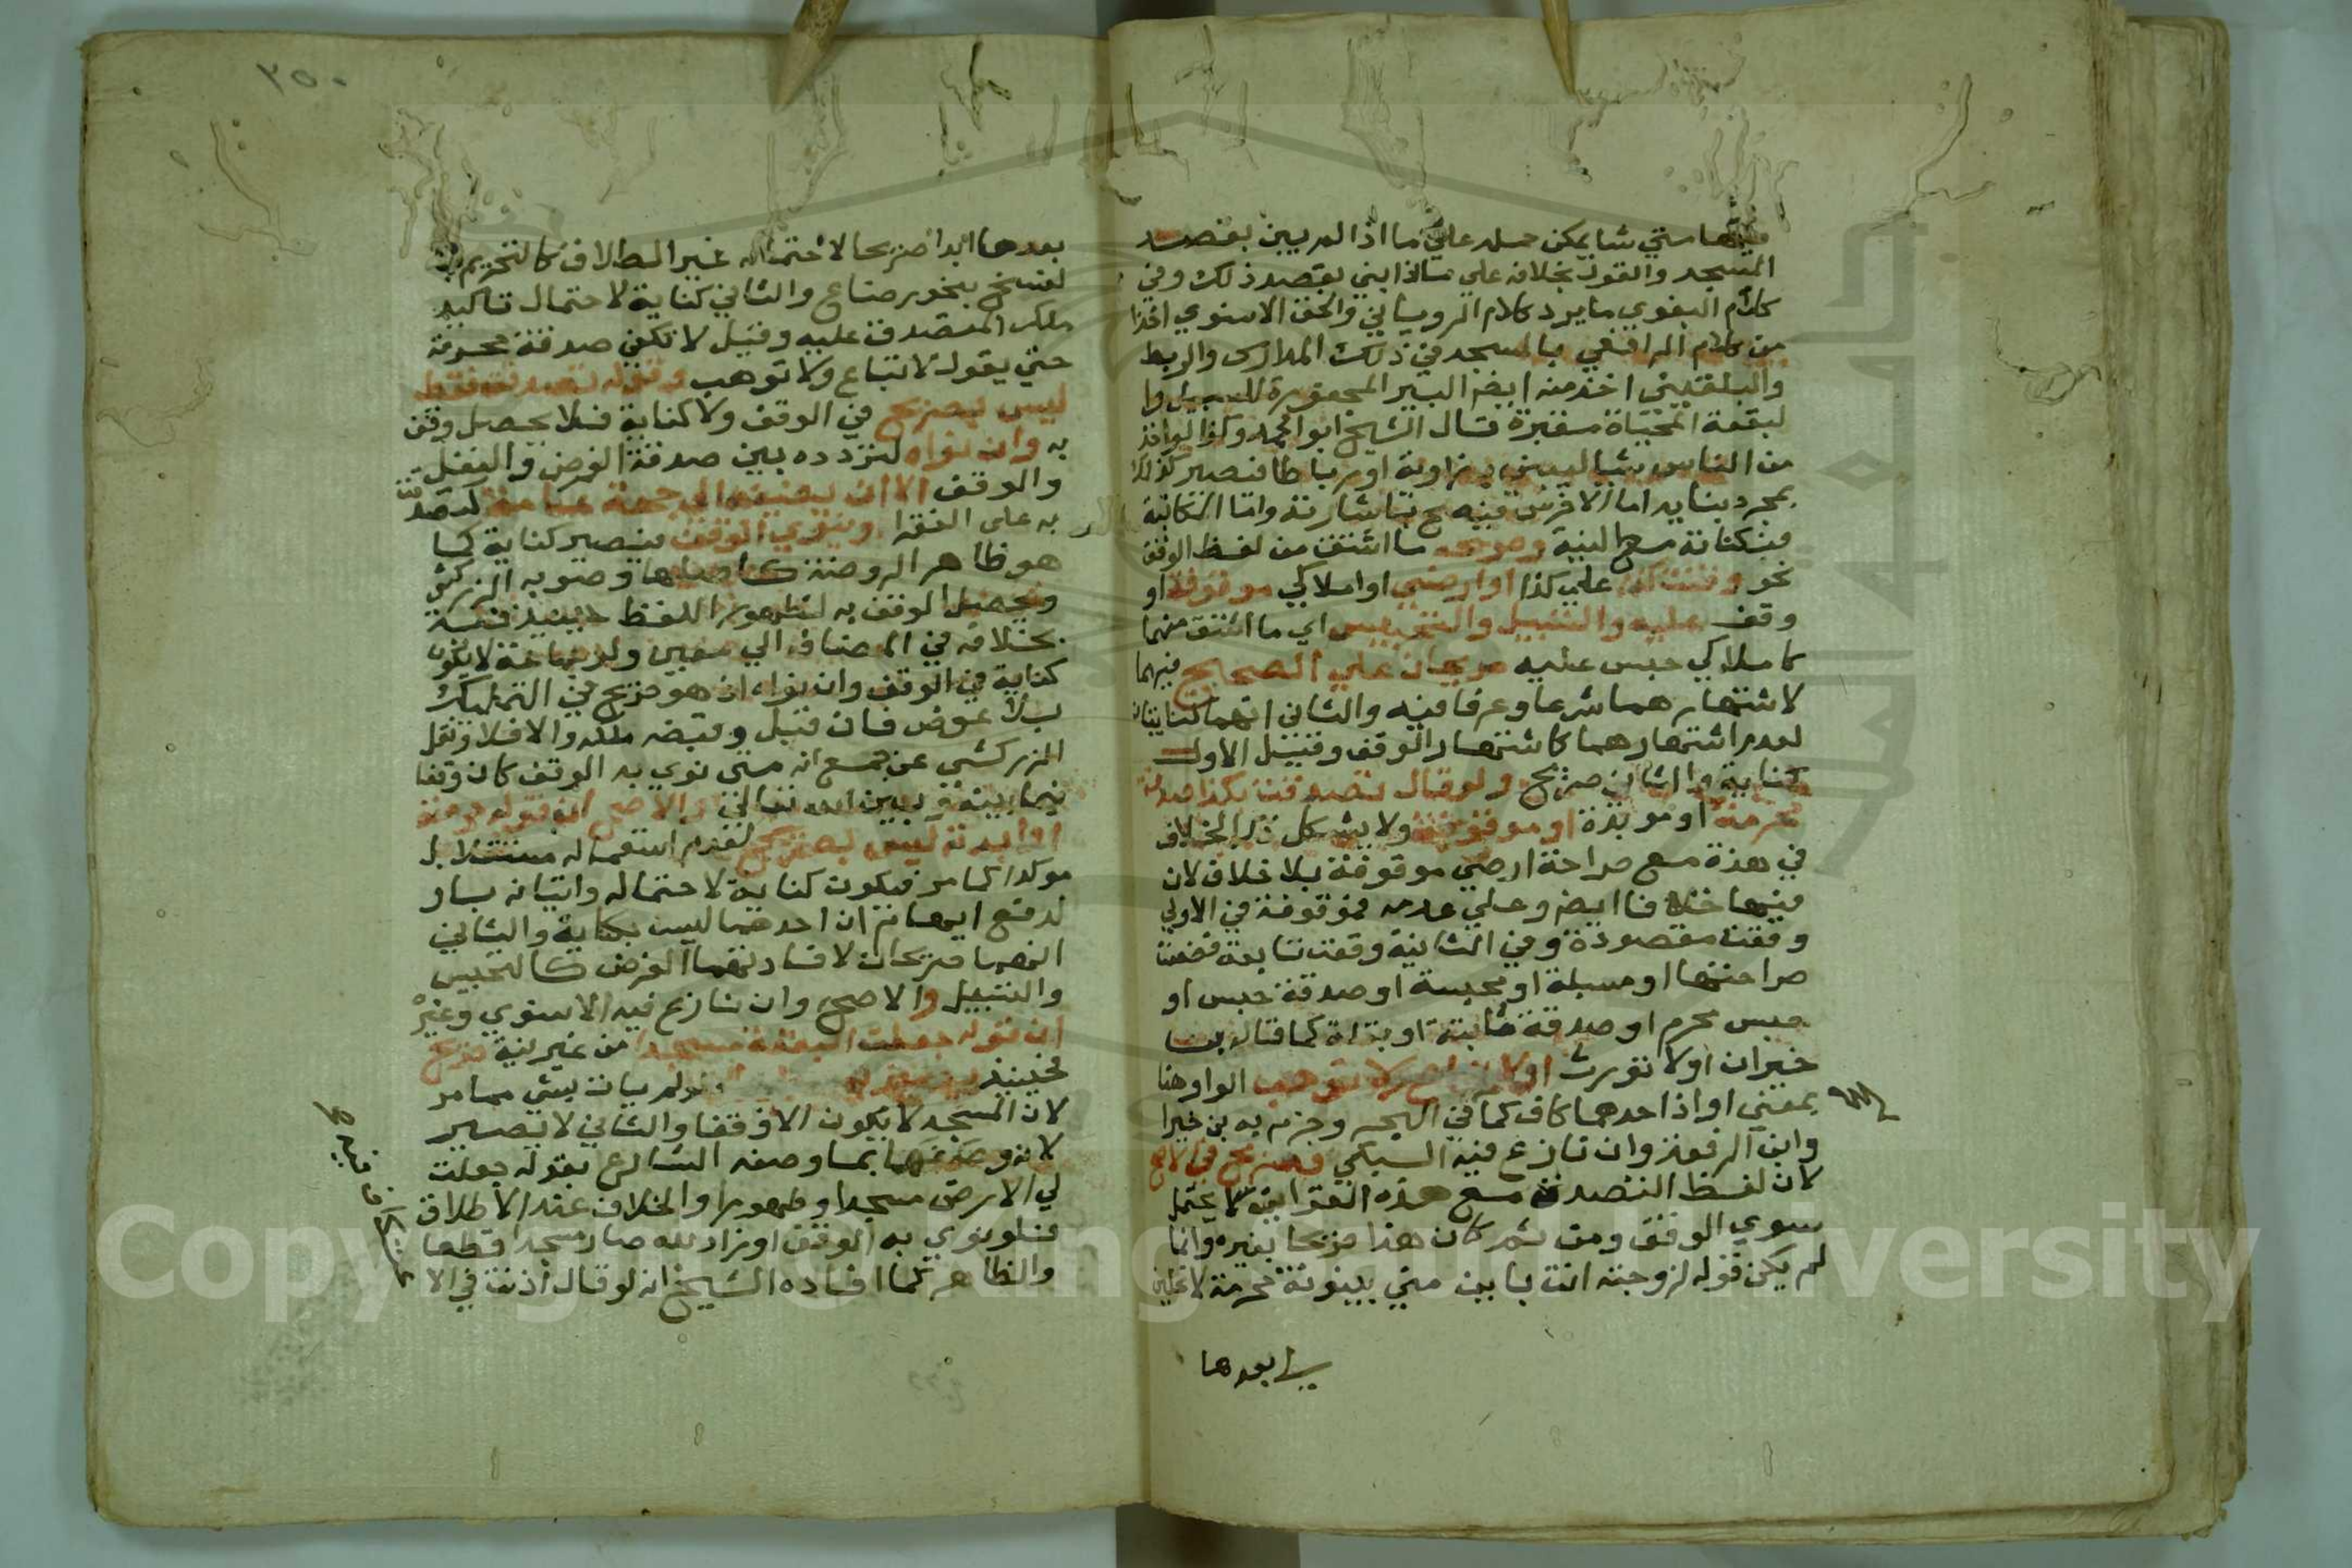 فيها متي شا يمكن حمله علي ما اذا لم يبن بقصد
المسجد والقول بخلافه علي ما اذا بني بقصد ذلك وفي
كلام البغوي ما يرد كلام الروياني والحق الاسنوي اخذا
من كلام الرافعي بالمسجد في ذلك المدارس والربط
والبلقيني اخذ منه ايضا البير المحفورة للسبيل وا
لبقعة المحياة مقبرة قال الشيخ ابو محمد وكذا لو اخذ
من الناس شيا ليبني به زاوية او رباطا فتصير كذلك
بمجرد بنايه اما الاخرس فيصح باشارته واما الكتابة
فبكتابة مع النية وصريحه ما اشتق من لفظ الوقف
نحو وقفت كذا علي كذا او ارضي او املاكي موقوفة او
وقف عليه والتسبيل والتحبيس اي ما اشتق منهما
كاملاكي حبس عليه صريحان علي الصحيح فيهما
لاشتهارهما شرعا وعرفا فيه والثاني انهما كنايتان
لعدم اشتهارهما كاشتهار الوقف وقيل الاول
كناية والثاني صريح ولو قال تصدقت بكذا صدقة
محرمة او موبدة او موقوفة ولا يشكل ذا الخلاف
في هذه مع صراحة ارضي موقوفة بلا خلاف لان
فيها خلافا ايضا وعلي عدمه فموقوفة في الاولي
وقعت مقصودة وفي الثانية وقعت تابعة فضعفت
صراحتها او مسبلة او محبسة او صدقة حبس او
حبس محرم او صدقة ثابتة او بتلة كما قاله بن
خيران او لا تورث او لا تباع ولا توهب الواو هنا
بمعني او اذ احدهما كاف كما في البحر وجزم به بن خيران
وابن الرفعة وان نازع فيه السبكي فصريح في الاصح
لان لفظ التصدق مع هذه القراين لا يحتمل
سوي الوقف ومن ثم كان هذا صريحا بغيره وانما
لم يكن قوله لزوجته انت باين مني بينونة محرمة لا تحلين
لي بعدها
٢٥٠
بعدها ابدا صريحا لاحتماله غير الطلاق كالتحريم
لفسخ بنحو رضاع والثاني كناية لاحتمال تاكيد
ملك المتصدق عليه وقيل لا تكفي صدقة محرمة
حتي يقول لا تباع ولا توهب وقوله تصدقت فقط
ليس بصريح في الوقف ولا كناية فلا يحصل وقف
به وان نواه لتردده بين صدقة الفرض والنفل
والوقف الا ان يضيفه الي جهة عامة كتصدقت
به على الفقرا وينوي الوقف فيصير كناية كما
هو ظاهر الروضة كاصلها وصوبه الزركشي
ويحصل الوقف به لظهور اللفظ حينيذ فيه
بخلافه في المضاف الي معين ولو جماعة لا يكون
كناية في الوقف وان نواه اذ هو صريح في التمليك
بلا عوض فان قبل وقبضه ملكه والا فلا ونقل
الزركشي عن جمع انه متى نوي به الوقف كان وقفا
فيما بينه وبين الله تعالي والاصح ان قوله حرمته
او ابدته ليس بصريح لعدم استعماله مستقلا بل
موكدا كما مر فيكون كناية لاحتماله واتيانه باو
لدفع ايهام ان احدهما ليس بكناية والثاني
انهما صريحان لافادتهما الغرض كالتحبيس
والتسبيل والاصح وان نازع فيه الاسنوي وغيره
ان قوله جعلت البقعة مسجدا من غير نية صريح
فحينيذ ولم يات بشي مما مر
لان المسجد لا يكون الا وقفا والثاني لا تصير
لانه وصفها بما وصفه الشارع بقوله جعلت
لي الارض مسجدا وطهورا والخلاف عند الاطلاق
فلو نوي به الوقف او زاد لله صار مسجدا قطعا
والظاهر كما افاده الشيخ انه لو قال اذنت في الا
Copyright © King Saud University